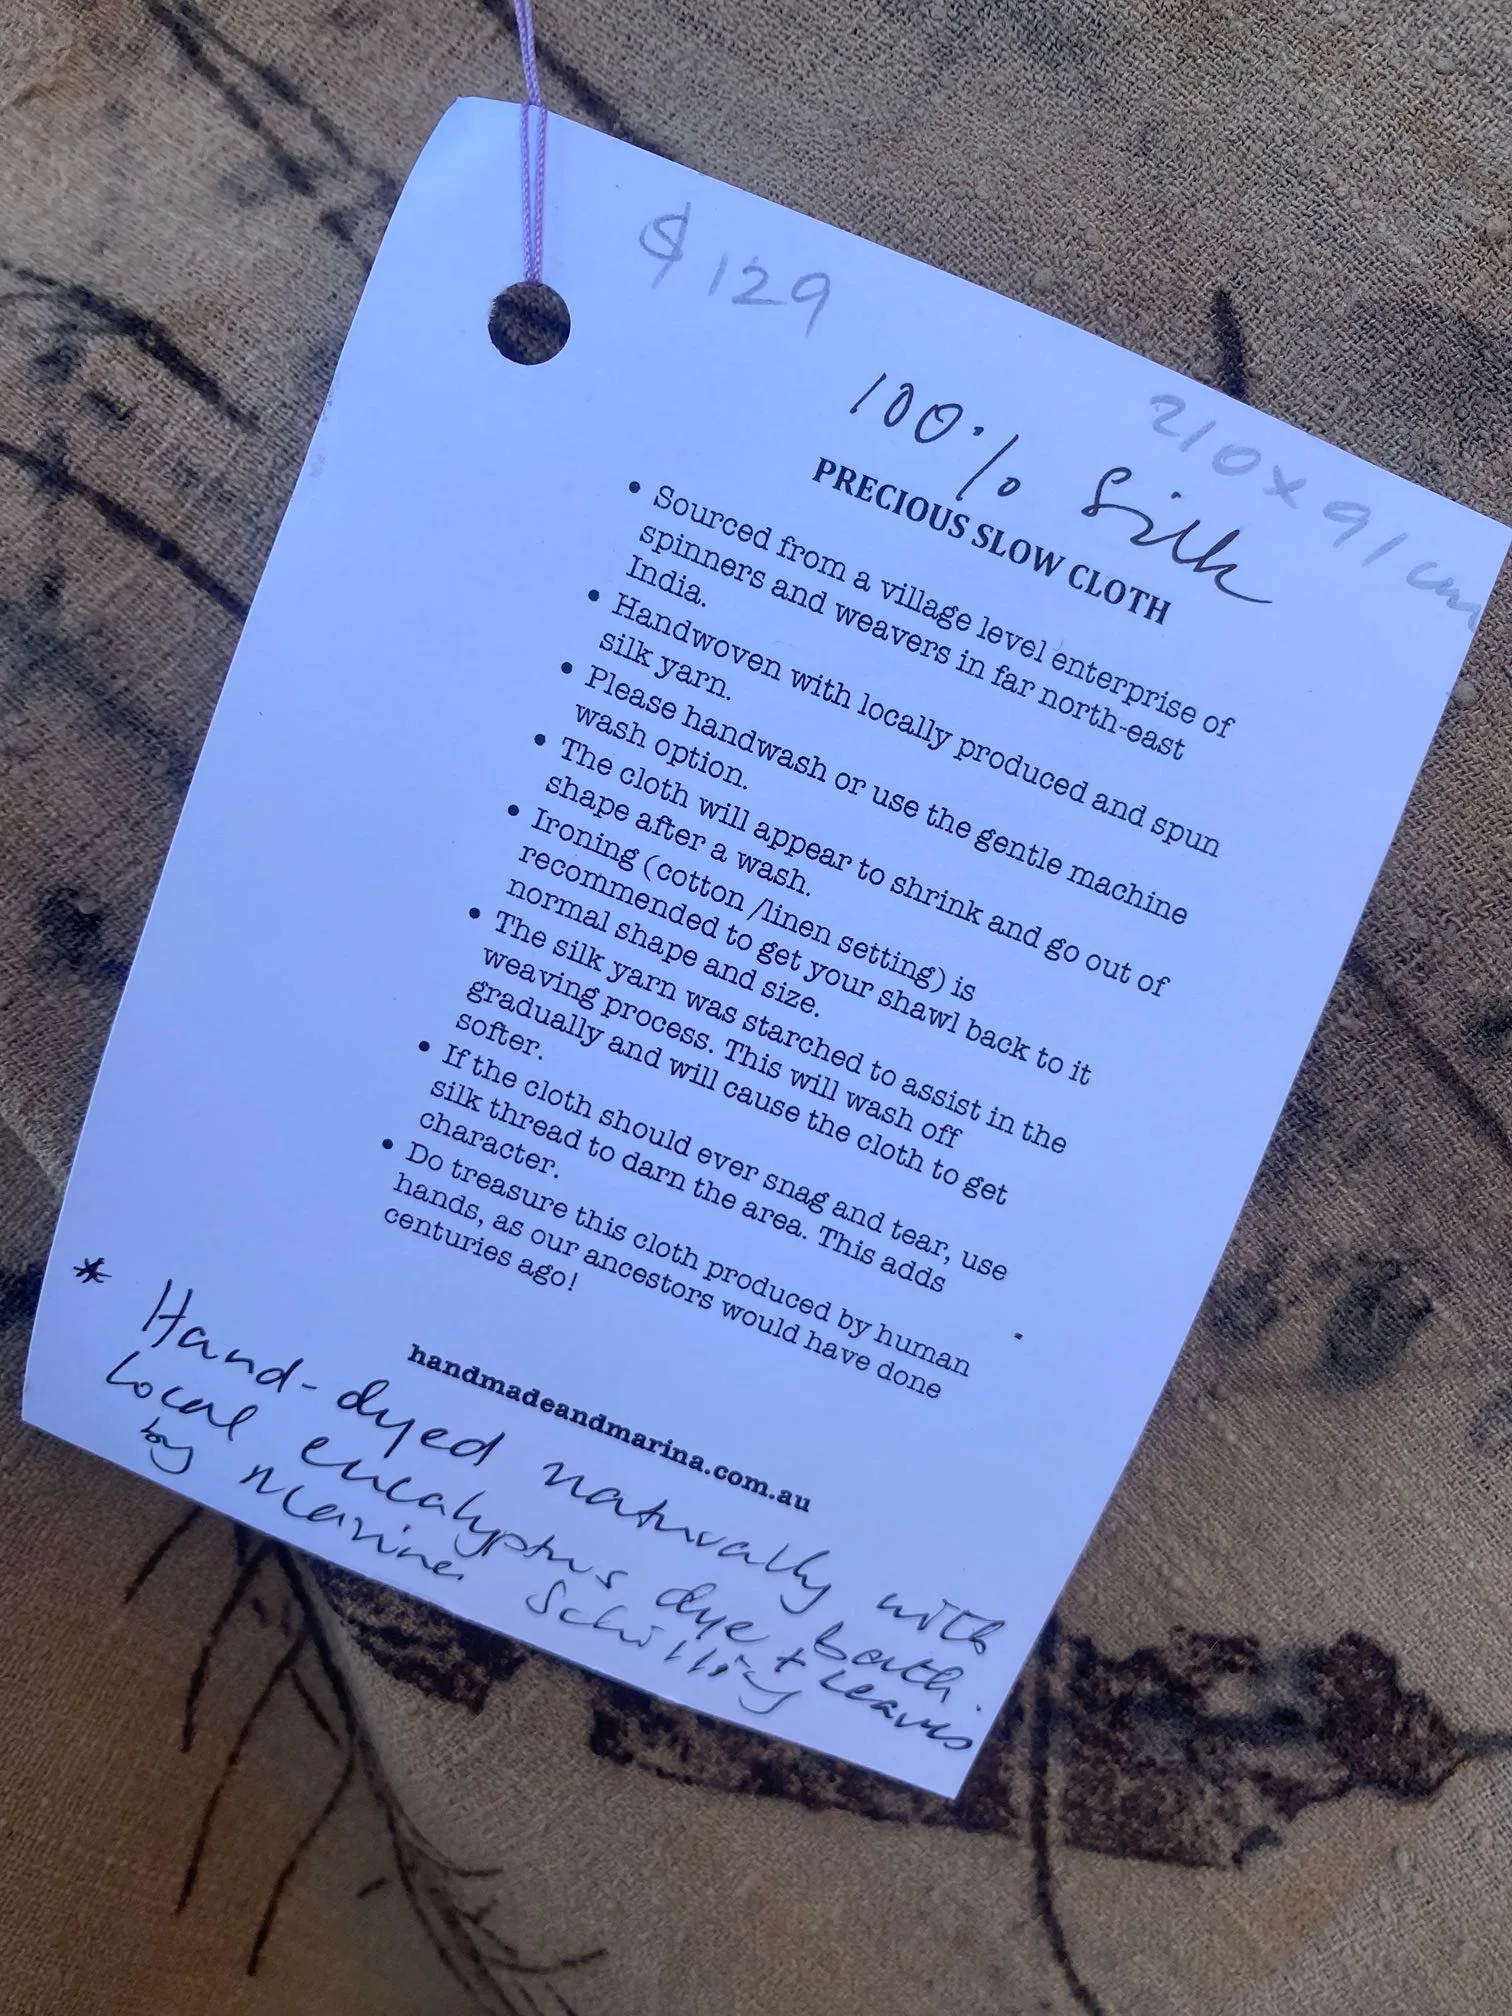 $129
210 x 91 cm
100% Silk
PRECIOUS SLOW CLOTH
• Sourced from a village level enterprise of
spinners and weavers in far north-east
India.
• Handwoven with locally produced and spun
silk yarn.
• Please handwash or use the gentle machine
wash option.
• The cloth will appear to shrink and go out of
shape after a wash.
• Ironing (cotton /linen setting) is
recommended to get your shawl back to it
normal shape and size.
• The silk yarn was starched to assist in the
weaving process. This will wash off
gradually and will cause the cloth to get
softer.
• If the cloth should ever snag and tear, use
silk thread to darn the area. This adds
character.
• Do treasure this cloth produced by human
hands, as our ancestors would have done
centuries ago!
handmadeandmarina.com.au
* Hand-dyed naturally with
local eucalyptus dye bath.
+ leaves
by Marina Schilling